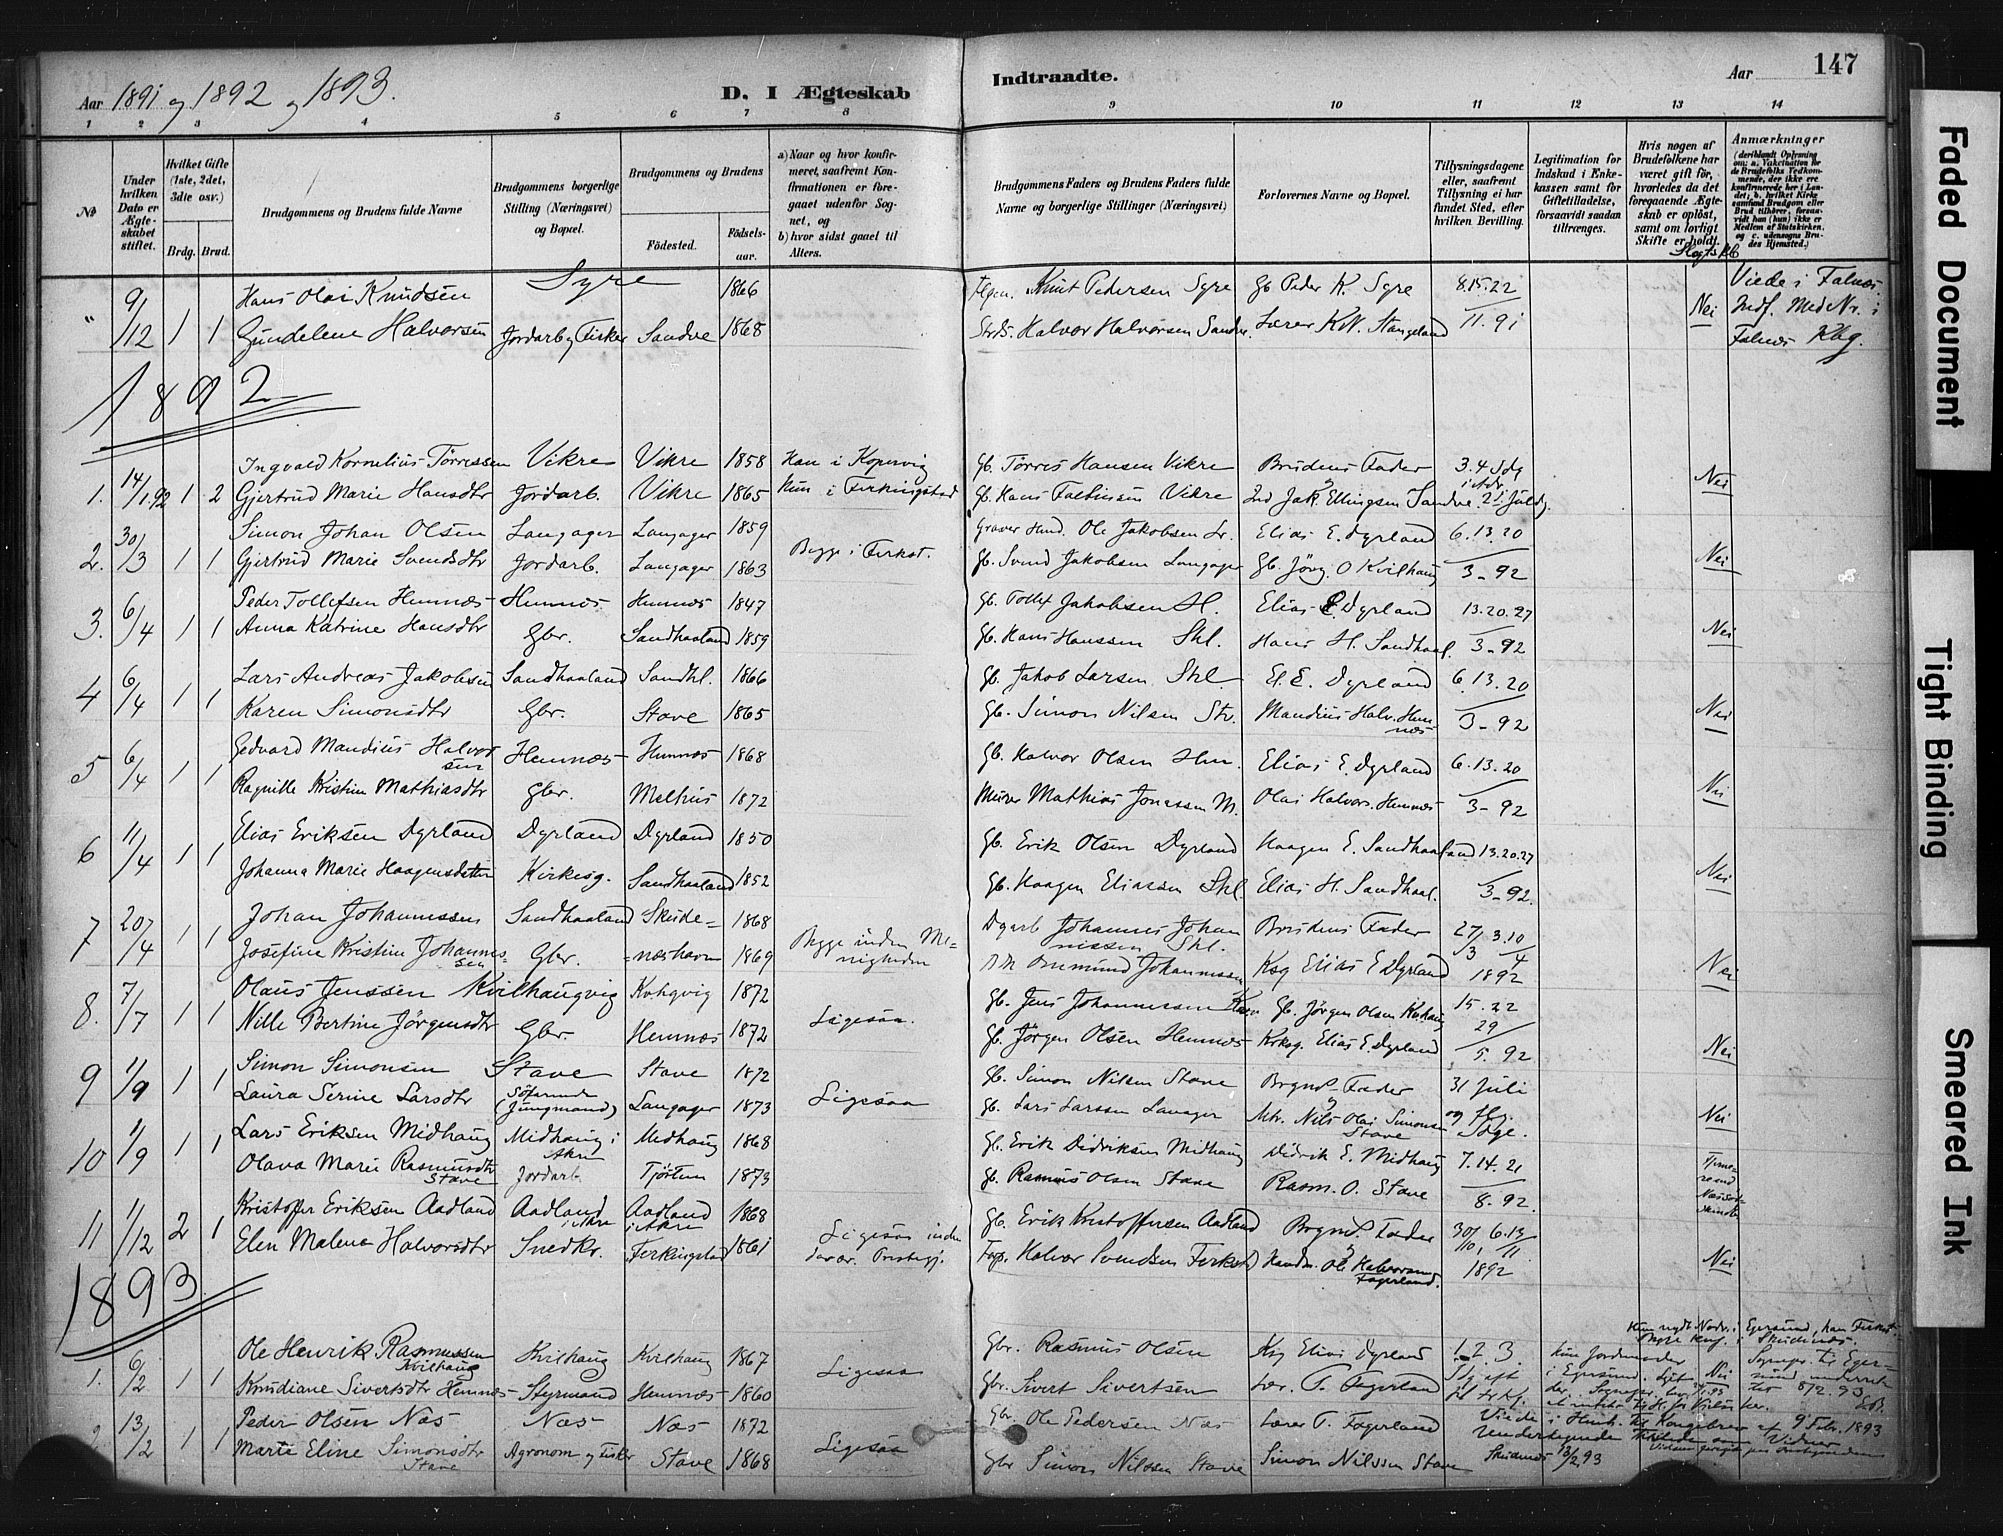 Aar 1891 og 1892 og 1893.
D. I Ægteskab
Indtraadte.
Aar
147
1 2 3 4 5 6 7 8 9 10 11 12 13 14
№
Under hvilken Dato er Ægteskabet stiftet.
Hvilket Gifte (1ste, 2det, 3dte osv.)
Brdg. Brud.
Brudgommens og Brudens fulde Navne
Brudgommens borgerlige Stilling (Næringsvei) og Bopæl.
Brudgommens og Brudens
Fødested.
Fødsels-aar.
a) Naar og hvor konfirmeret, saafremt Konfirmationen er foregaaet udenfor Sognet, og
b) hvor sidst gaaet til Alters.
Brudgommens Faders og Brudens Faders fulde Navne og borgerlige Stillinger (Næringsvei)
Forlovernes Navne og Bopæl.
Tillysningsdagene eller, saafremt Tillysning ei har fundet Sted, efter hvilken Bevilling.
Legitimation for Indskud i Enkekassen samt for Giftetilladelse, forsaavidt saadan tiltrænges.
Hvis nogen af Brudefolkene har været gift før, hvorledes da det foregaaende Ægteskab er opløst, samt om lovligt Skifte er holdt.
Anmærkninger
(deriblandt Oplysning om: a. Vakcination for de Brudefolks Vedkommende, der ikke ere konfirmerede her i Landet; b. hvilket Kirkesamfund Brudgom eller Brud tilhører, forsaavidt han (hun) ikke er Medlem af Statskirken, og c. udensogns Brudes Hjemsted.)
9/12 1 1 Hans Olai Knudsen Syre 1866 Knut Pedersen Syre Gb Peder K. Syre 8.15.22 Viede i Falnæs
" Gundelene Halvorsen Jordarb og Fisker Sandve 1868 Halvor Halvorsen Sandve Lærer K.N. Stangeland 11.91 Nei Indf. Med Nr. i
Falnæs Kbg.
1892
Ingvald Kornelius Törressen Vikre Vikre 1858 Han i Kopervig Gb. Törres Hansen Vikre Brudens Fader 3.4 Sdg
1. 14/1 92 1 2 Gjertrud Marie Hansdtr Jordarb. Vikre 1865 Hun i Ferkingstad Gb. Hans Vikre Jak. Ellingsen Sandve Nei
Simon Johan Olsen Langager Langager 1859 Ole Jakobsen Lr. Elias E. Dyrland 6.13.20
2. 30/3 1 1 Gjertrud Marie Svendsdtr Jordarb. Langager 1863 Begge i Ferkst. Gb. Svend Jakobsen Langager Gb. Jörg. O Kvilhaug 3-92 Nei
Peder Tollefsen Hemnæs Hemnæs Hemnæs 1847 Gb. Tollef Jakobsen H. Elias E Dyrland 13.20.27
3. 6/4 1 1 Anna Katrine Hansdtr Gbr. Sandhaaland 1859 Gb. Hans Hanssen Shl. Hans H. Sandhaal. 3-92 Nei
Lars Andreas Jakobsen Sandhaaland Sandhl. 1866 Gb. Jakob Larsen Shl El. E. Dyrland 6.13.20
4 6/4 1 1 Karen Simonsdtr Gbr. Stave 1865 Gb. Simon Nilsen Stv. Mandius Halv. Hemnæs 3-92 Nei
Gedvard Mandius Halvorsen Hemnæs Hemnæs 1868 Gb. Halvor Olsen Hm. Elias E. Dyrland 6.13.20
5 6/4 1 1 Ragnille Kristine Mathiasdtr Gbr. Melhus 1872 Murer Mathias Jonassen M. Olai Halvors. Hemnæs 3-92 Nei
Elias Eriksen Dyrland Dyrland Dyrland 1850 Gb. Erik Olsen Dyrland Haagen E. Sandhaaland 13.20.27
6 11/4 1 1 Johanna Marie Haagensdatter Kirkesg. Sandhaaland 1852 Gb. Haagen Eliassen Shl Elias H. Sandhaal. 3-92. Nei
Johan Johannessen Sandhaaland Skude- 1868 Johannes Johannessen Shl. Brudens Fader 27/3 3.10/4
7 20/4 1 1 Josefine Kristine Johannessen Gbr. næshavn 1869 Begge inden Menigheden Omund Johannessen Ksg Elias E Dyrland 1892 Nei
Olaus Jenssen Kvilhaugvig Kvhgvig 1872 Gb. Jens Johannessen Gb. Jörgen Olsen Kvhaug 15.22
8. 7/7 1 1 Nille Bertine Jörgensdtr Gbr. Hemnæs 1872 Ligesaa. Gb. Jörgen Olsen Hemnæs Krksg. Elias E. Dyrland 29/5. 92 Nei
Simon Simonsen Stave Stave 1872 Gb. Simon Nilsen Stave Brgms Fader 31 Juli
9 1/9 1 1 Laura Serine Larsdtr (Jungmand) Langager 1873 Ligesaa Gb. Lars Larssen Lanager Nils Olai Simonsen Stave og flg. Sdge. Nei
Lars Eriksen Midhaug Midhaug i Akre Midhaug 1868 Gb. Erik Didriksen Midhaug Didrik E. Midhaug 7.14.21
10 1/9 1 1 Olava Marie Rasmusdtr Stave Jordarb. 1873 Gb. Rasmus Olsen Stave Rasm. O. Stave 8.92.
Kristoffer Eriksen Aadland Aadland i Akre Aadland i Akre 1868 Gb. Erik Kristoffersen Aadland Brgms Fader 30/10, 6.13/11
11 1/12 2 1 Elen Malena Halvorsdtr Snedkr. Ferkingstad 1861 Ligesaa inden Prestegj. Halvor Svendsen Ferkst Ole Halvorsen Fagerland. 1892 Nei
1893
Ole Henrik Rasmussen Kvilhaug Kvilhaug Kvilhaug 1867 Gbr. Rasmus Olsen Ksg Elias Dyrland 1. 2 3
1. 6/2 1 1 Knudiane Sivertsdtr Hemnæs Styrmand Hemnæs 1860 Ligesaa Gbr. Sivert Sivertsen Lær. T. Fagerland Nei
Peder Olsen Næs Næs Næs 1872 Gbr Ole Pedersen Næs Lærer T. Fagerland Viede i Kongebrev af 9 Febr. 1893
2 13/2 1 1 Marta Eline Simonsdtr Stave Agronom og Fisker Stave 1868 Ligesaa Gbr Simon Nilssen Stave Simon Nilssen Stave Skudenæs 13/2 93
Faded Document
Tight Binding
Smeared Ink